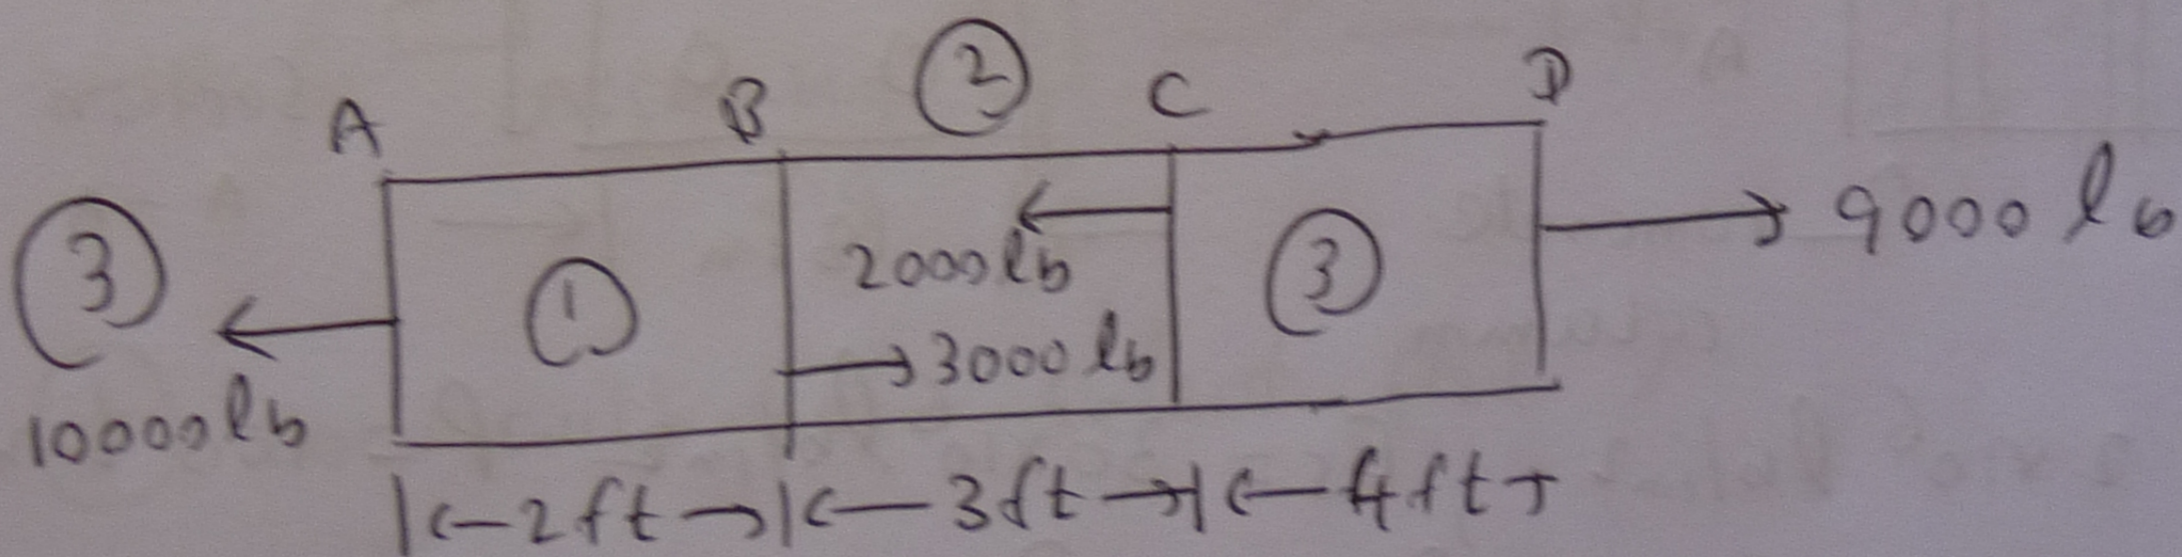 A B ② C D
③ ① 2000 lb ③ 9000 lb
10000 lb 3000 lb
|<-2ft->|<-3ft->|<-4ft->